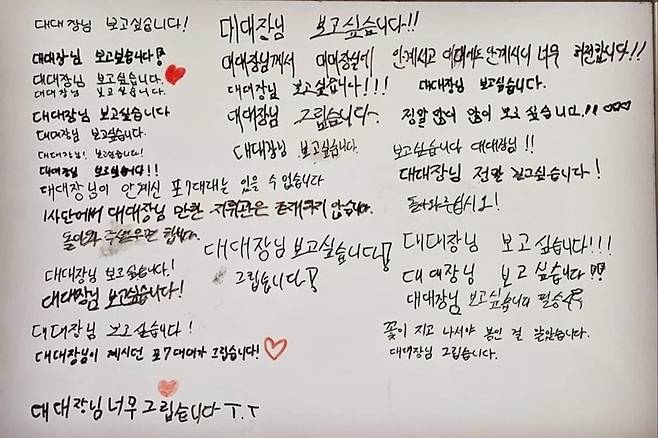 대대장님 보고싶습니다!
대대장님 보고싶습니다!
대대장님 보고싶습니다.
대대장님 보고싶습니다.
대대장님 보고싶습니다
대대장님 보고싶습니다.
대대장님! 보고싶습니다!
대대장님 보고싶습니다!!
대대장님이 안계신 포7대대는 있을 수 없습니다
1사단에서 대대장님 만한 지휘관은 존재하지 않습니다.
돌아와 주셨으면 합니다.
대대장님 보고싶습니다!
대대장님 보고싶습니다!
대대장님 보고싶습니다!
대대장님이 계시던 포7대대가 그립습니다!
대대장님 너무 그립습니다 T.T
대대장님 보고싶습니다!!
대대장님께서 대대장실에 안계시고 대대에도 안계시니 너무 허전합니다!!
대대장님 보고싶습니다!!!
대대장님 그립습니다.
대대장님 보고싶습니다.
대대장님 보고싶습니다!
그립습니다!
대대장님 보고싶습니다.
정말 많이 많이 보고 싶습니다!!
보고싶습니다 대대장님!!
대대장님 정말 보고싶습니다!
돌아와주십시오!
대대장님 보고싶습니다!!!
대대장님 보고싶습니다!!
대대장님 보고싶습니다 필승
꽃이 지고 나서야 봄인 걸 알았습니다.
대대장님 그립습니다.